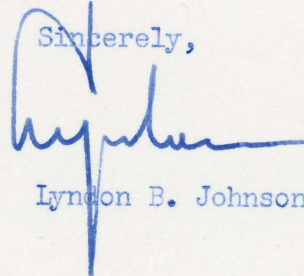 Sincerely,
Lyndon
Lyndon B. Johnson